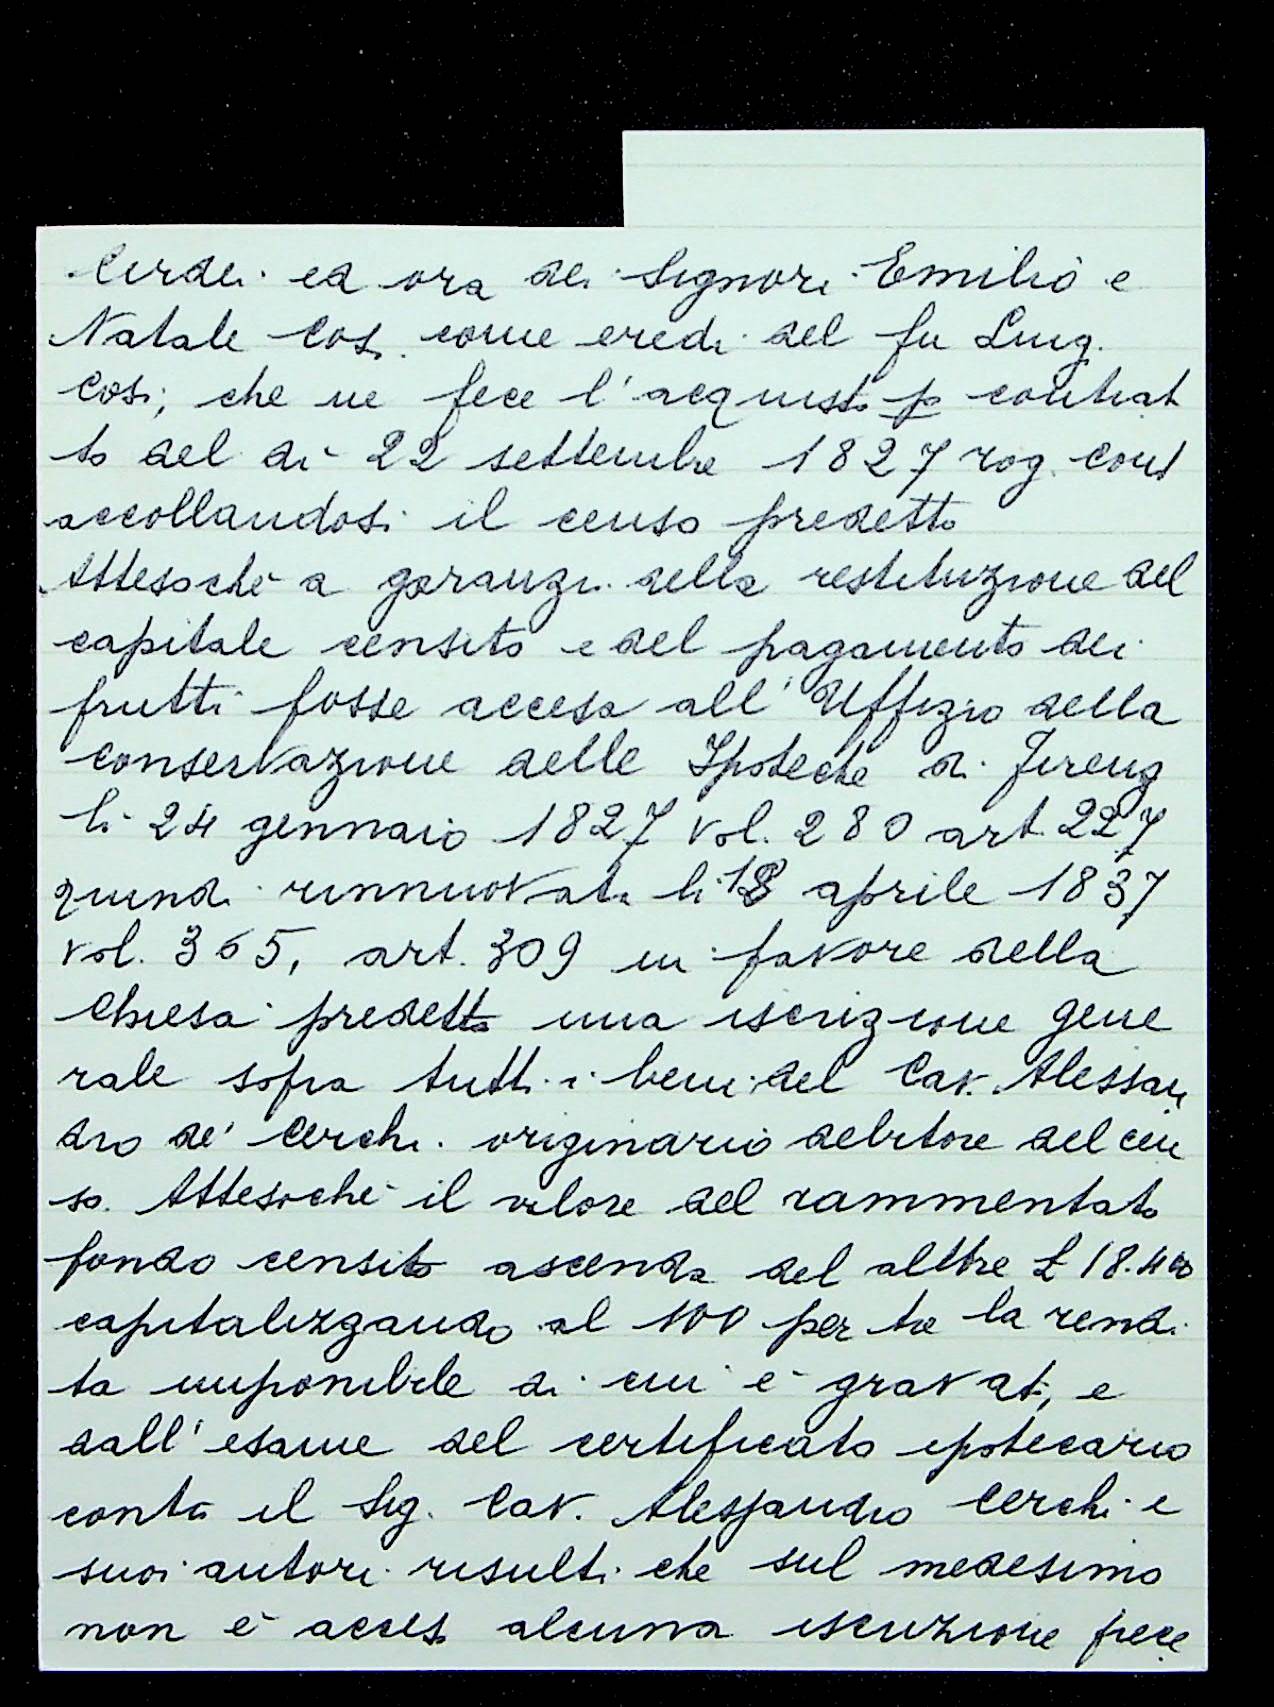 Cerchi ed ora dei Signori Emilio e
Natale Cosi come eredi del fu Luig.
Cosi; che ne fece l'acquisto p contrat
to del dì 22 settembre 1827 rog. Cont
accollandosi il censo predetto
Attesochè a garanzi. della restituzione del
capitale censito e del pagamento dei
frutti fosse accesa all'Uffizio della
conservazione delle Ipoteche di Firenz
li 24 gennaio 1827 vol. 280 art. 227
quindi rinnuovata li 18 aprile 1837
vol. 365, art. 309 in favore della
Chiesa predetta una iscrizione gene
rale sopra tutti i beni del Cav. Alessan
dro de' Cerchi originario debitore del cen
so. Attesochè il valore del rammentato
fondo censito ascenda del altre £ 18.400
capitalizzando al 100 per la rendi
ta imponibile di cui è gravat, e
dall'esame del certificato ipotecario
contro il Sig. Cav. Alessandro Cerchi e
suoi autori risulti che sul medesimo
non è acces alcuna iscrizione prece